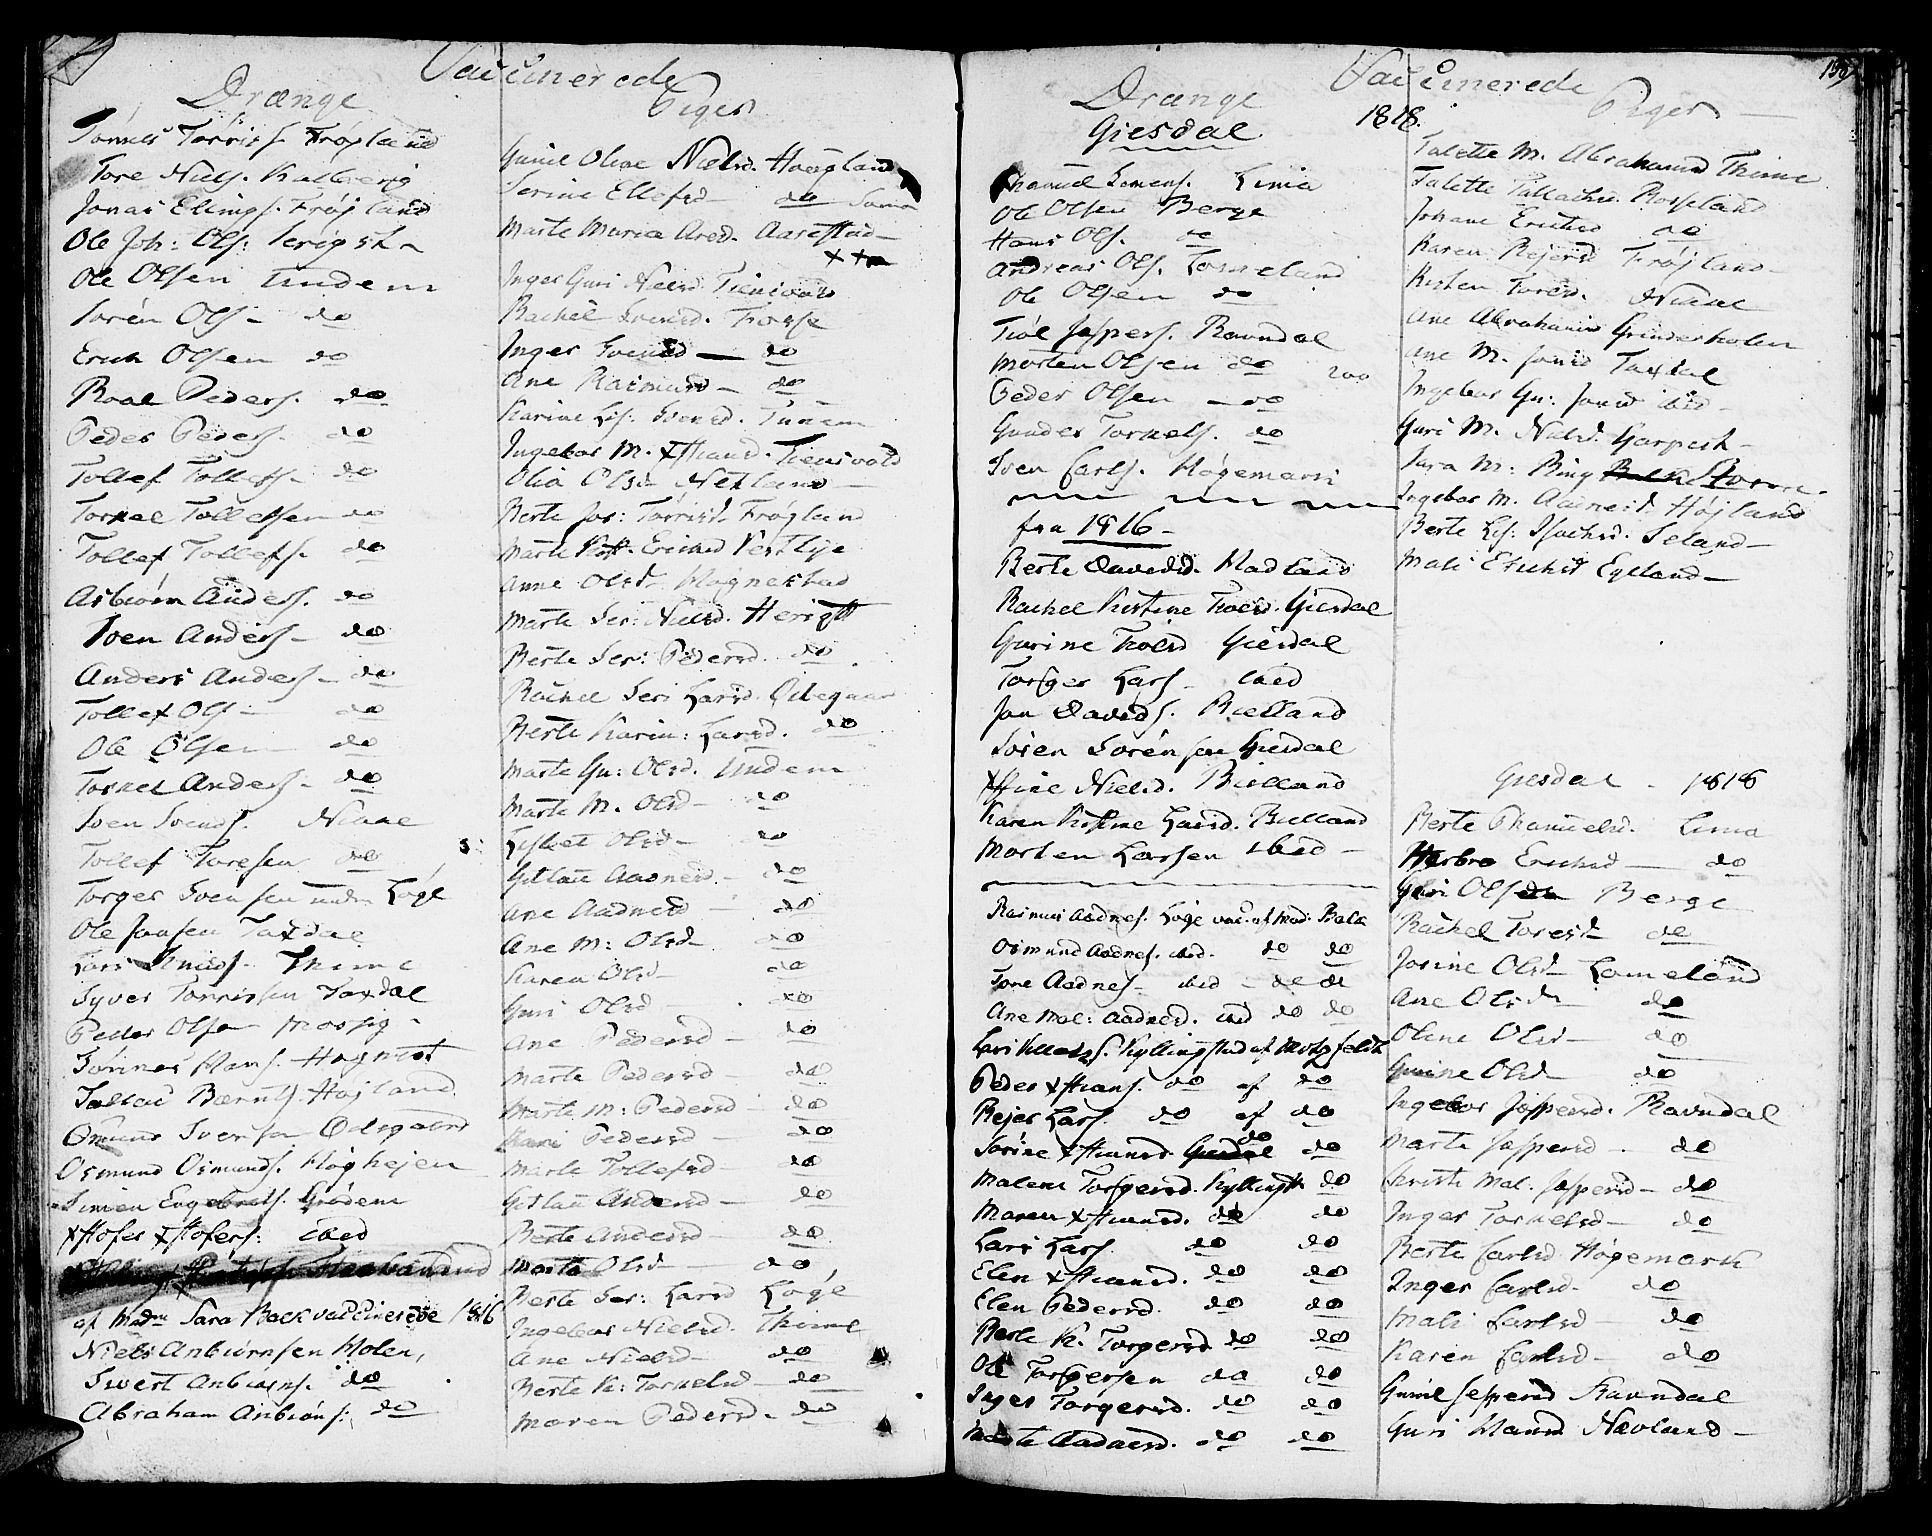 Vaccinerede
Drænge
Tønnes Tørriss. Frøyland
Tore Niels. Kalberig
Jonas Ellings. Frøjland
Ole Joh: Ols:
Ole Olsen Undem
Sørén Ols- do
Erich Olsen do
Roal Peders. do
Peder Peders. do
Tollef Tollefs. do
Torkel Tollefsen do
Tollef Tollefs. do
Asbiørn Anders. do
Sven Anders- do
Anders Anders- do
Tollef Ols- do
Ole Olsen do
Torkel Anders- do
Sven Svends. Niaae
Tollef Toresen do
Torger Svensen Løge
Ole Jansen Taxdal
Lars Knuds- Thime
Syver Tørrissen Taxdal
Peder Olsen Mossig-
Tønnes Hans. Hognest
Tallac Bærnts. Høiland
Osmund Svensen Ødegaard
Osmund Osmunds. Høghejen
Simen Engebrets. Grødem
Xstofer Xstofers: ibid
af Madm Sara Back vaccinerede 1816
Niels Anbiørnsen Molen,
Sivert Anbiørns. do
Abraham Anbiøns: do
Piger
Gunil Oline Nielsd. Haagland
Serine Ellefsd- do
Marte Maria Aresd. Aarestad-
Inger Guri Nielsd
Rachel Svensd. Fosse
Inger Svensd- do
Ane Rasmusd- do
Karine Lis: Svensd. Tunem
Ingebor M. Xstiansd.
Olia Olsd- Netland-
Berte Jos: Tørrisd. Frøyland
Marte Kist. Erichsd Vestlye
Anne Olsd- Mognestad
Marte Ser: Nielsd. Herigst
Berte Ser: Pedersd. do
Rachel Seri Larsd. Ødegaar
Berte Karin: Larsd. do
Marte Gu: Olsd. Undem
Marte M. Olsd- do
Lisbet Olsd- do
Gitlau Aadnesd- do
Ane Aadnesd- do
Ane M: Olsd- do
Karen Olsd- do
Guri Olsd- do
Ane Pedersd- do
Marte Pedersd- do
Marte M: Pedersd do
Kari Pedersd- do
Marte Tollefsd- do
Gitlau Andersd- do
Berte Andersd- do
Marta Olsd- do
Berte Ser: Larsd Løge
Ingebor Nielsd. Thime
Ane Nielsd- do
Berte K: Torkelsd- do
Maren Pedersd- do
Vaccinerede
1818.
Drænge
Giesdal
Thamel Simens. Lima
Ole Olsen Berge
Hans Ols. do
Andreas Ols. Lomeland
Ole Olsen do
Tiøl Jespers. Ravndal
Morten Olsen do
Peder Olsen -do
Gunder Torkels. do
Sven Carls. Høgemark
fra 1816-
Berte Davidsd. Madland
Rachel Kirstine Thoresd. Giesdal
Gurine Thoresd Giesdal
Torger Lars- ibid
Jan Davids. Bielland
Søren Sørénsen Giesdal
Xstine Nielsd. Bielland
Karen Kirstine Larsd. Bielland
Morten Larsen ibid-
Rasmus Aadnes. Løge vac: af Mad: Balk
Osmund Aadnes. ibid. do do
Tore Aadnes- ibid - do do
Ane Mal: Aadnesd. ibid do do
Kyllingstad af Motzfeldt
Peder Xstians. do af do
Rejer Lars. do af do
Sørine Xstiansd. do do
Malene Torgersd. Kyllingst do
Maren Xstiansd. do do
Lars Lars. do do
Elen Xstiansd. do do
Elen Pedersd. do do
Berte K. Torgersd do do
Ole Torgersen do do
Inger Torgersd. do do
Marte Aadnesd. do do
139
Piger-
Talette M. Abrahamsd Thime
Talette Tallachsd. Rosseland
Johane Erichsd do
Karen Rejersd Frøjland-
Kirsten Toresd. Niaae
Ane Abrahamsd Grinderholen
Ane M. Jonsd Taxdal
Ingebor Gu: Jonsd ibid-
Guri M. Nielsd. Garpest-
Sara M: Ring Storm-
Ingebor M. Aanesd. Høiland
Berte Lis: Isachsd. Seland-
Mali Erichsd Egeland-
Giesdal - 1818
Berte Thamelsd. Lima
Herbro Erichsd- do
Guri Olsd Berge
Rachel Toresd- do
Josine Olsd- Lomeland
Ane Olsd- do
Oline Olsd- do
Gurine Olsd- do
Ingebor Jespersd. Ravndal
Marte Jespersd- do
Kirsti Mal: Jespersd- do
Inger Torkelsd- do
Berte Carlsd Høgemark
Inger Carlsd- do
Mali Carlsd- do
Karen Carlsd- do
Gunil Jespersd Ravndal
Guri Mannsd Nævland-